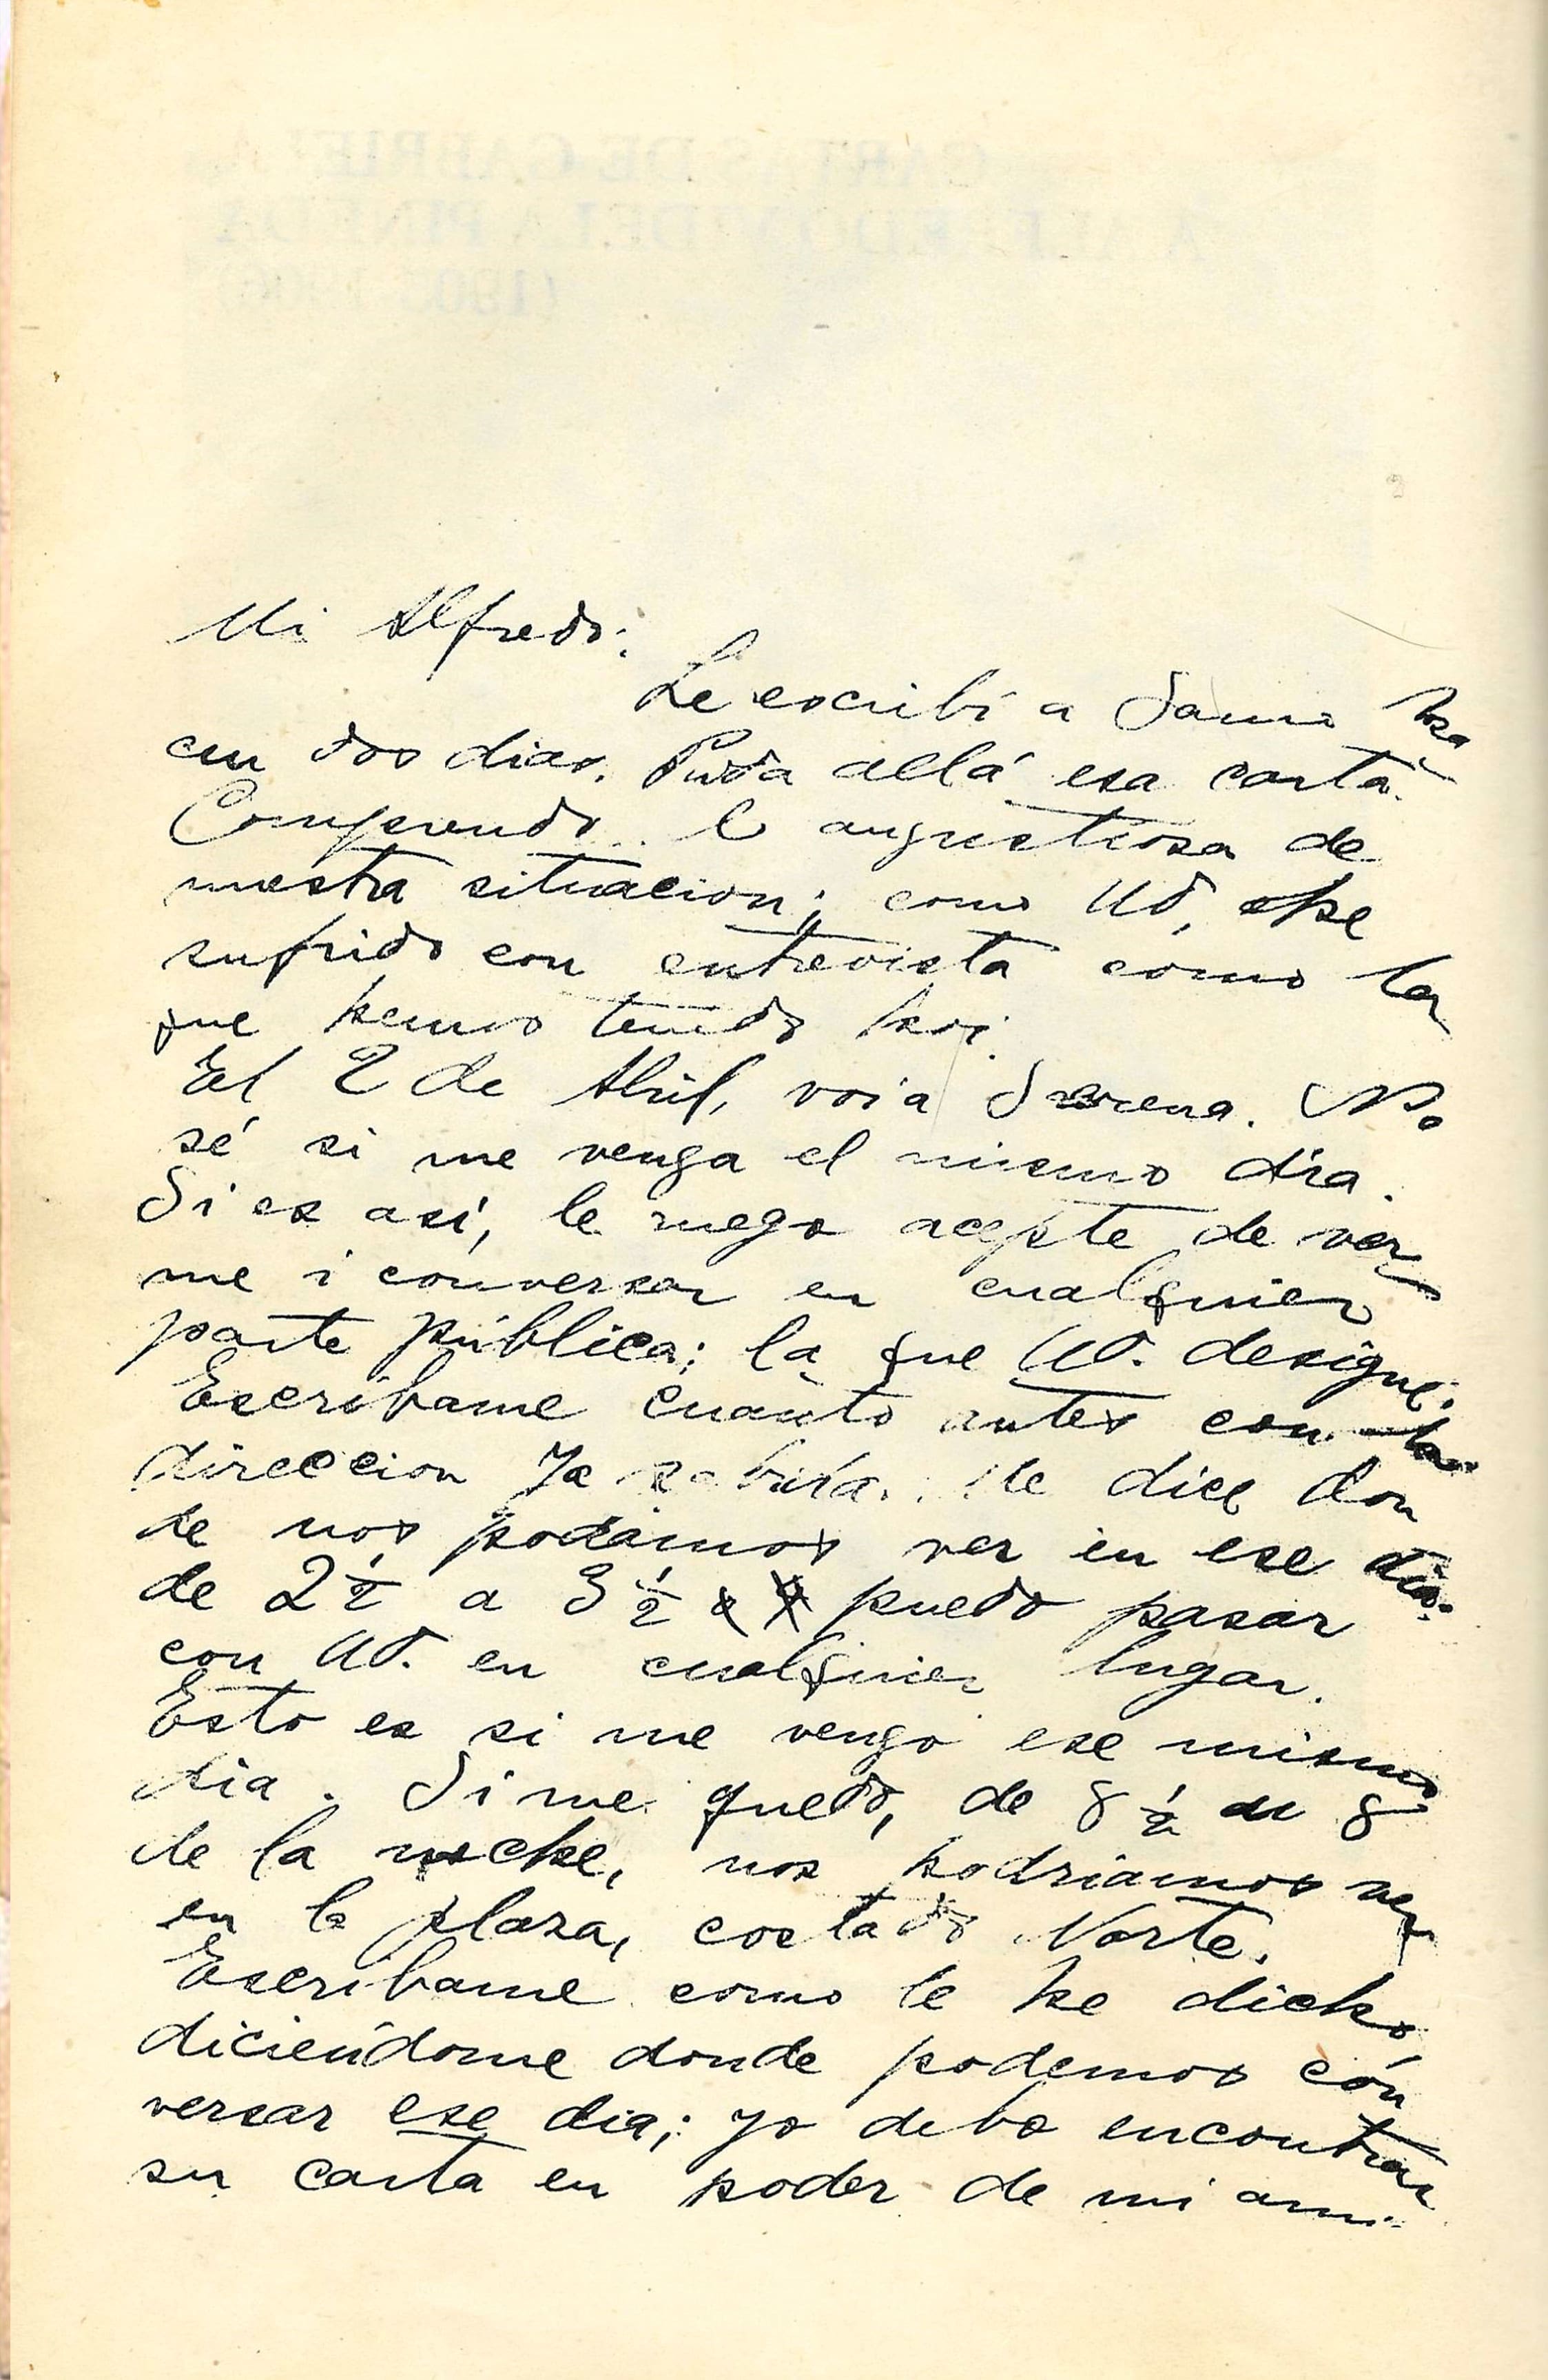 Mi Alfredo:
Le escribí a Samo ha
cen dos dias. Pida allá esa carta.
Comprendo lo angustiosa de
nuestra situacion; como Ud, he
sufrido con entrevista como la
que hemos tenido hoi.
El 2 de Abril, voi a Serena. No
sé si me venga el mismo dia.
Si es así, le ruego acepte de ver
me i conversar en cualquier
parte pública; la que Ud. designe.
Escríbame cuanto antes con la
direccion Ya sabida. Me dice don
de nos podamos ver en ese dia.
de 2 ½ a 3 ½ puedo pasar
con Ud. en cualquier lugar.
Esto es si me vengo ese mismo
dia. Si me quedo, de 8 ½ 8
de la noche, nos podriamos ver
en la plaza, costado Norte.
Escríbame como le he dicho
diciéndome donde podemos con
versar ese dia; yo debo encontrar
su carta en poder de mi ami